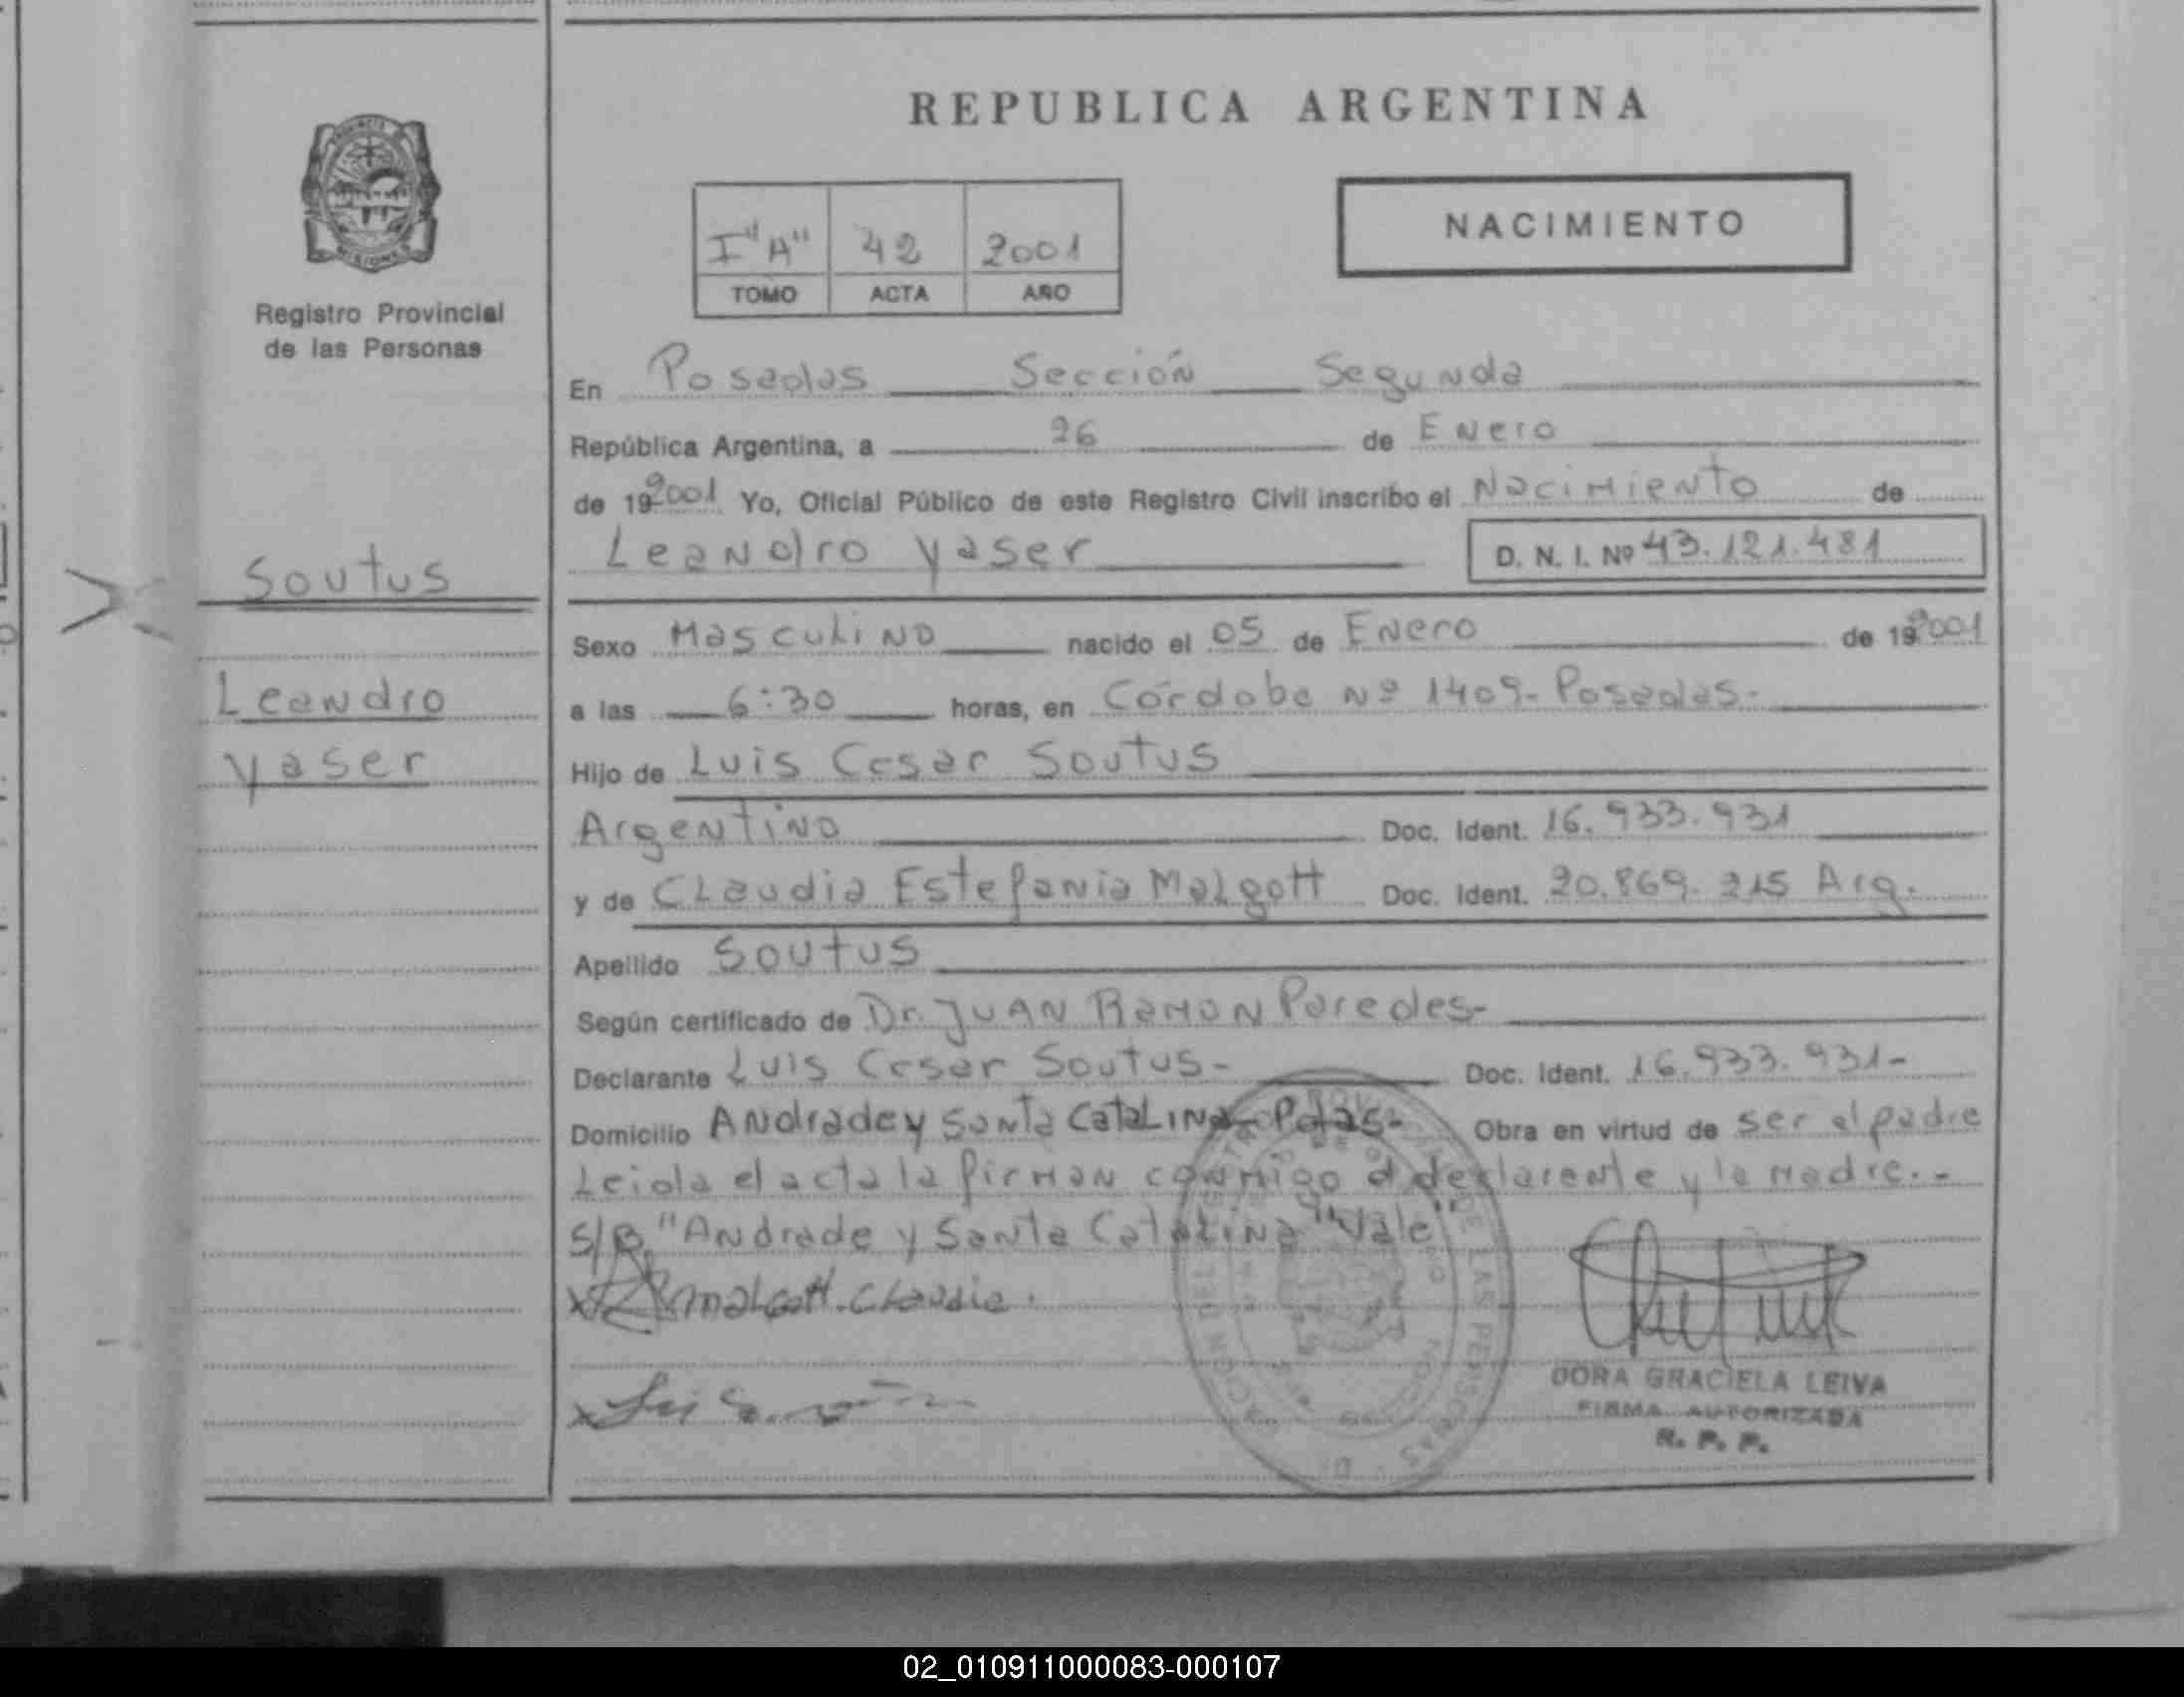 REPUBLICA ARGENTINA
NACIMIENTO
I "A" 42 2001
TOMO ACTA AÑO
Registro Provincial
de las Personas
En Posadas Sección Segunda
República Argentina, a 26 de Enero
de 19 2001 Yo, Oficial Público de este Registro Civil inscribo el Nacimiento de
Leandro Yaser D. N. I. Nº 43.121.481
Soutus
Leandro
Yaser
Sexo Masculino nacido el 05 de Enero de 19 2001
a las 6:30 horas, en Córdoba Nº 1409- Posadas-
Hijo de Luis Cesar Soutus
Argentino Doc. Ident. 16.933.931
y de Claudia Estefania Malgott Doc. Ident. 20.869.215 Arg.
Apellido Soutus
Según certificado de Dr. Juan Ramon Paredes-
Declarante Luis Cesar Soutus- Doc. Ident. 16.933.931-
Domicilio Andrade y Santa Catalina- Pdas- Obra en virtud de ser el padre
Leida el acta la firman conmigo el declarante y la Madre.-
S/B. "Andrade y Santa Catalina" "Vale"
x Malgott Claudia.
DORA GRACIELA LEIVA
FIRMA AUTORIZADA
R. P. P.
02_010911000083-000107